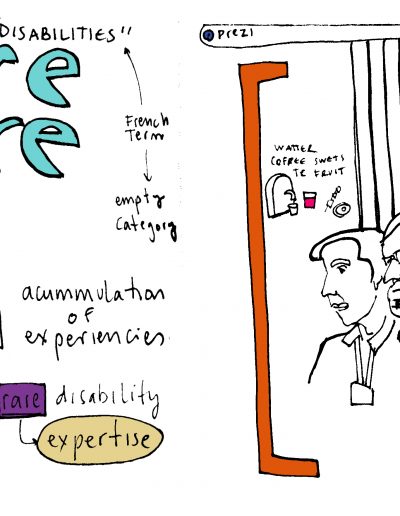 DISABILITIES"
re
re
French
Term
empty
category
acummulation
of
experiencies
rare disability
expertise
PREZI
WATTER
COFFEE SWETS
TE FRUIT